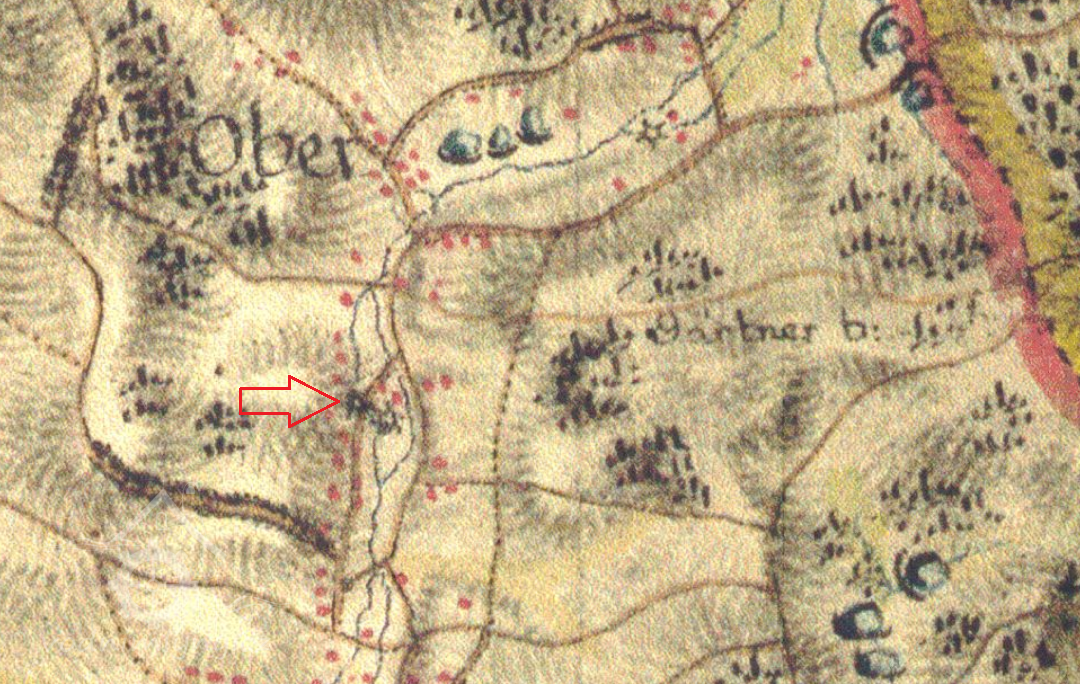 Ober
Gärtner b: